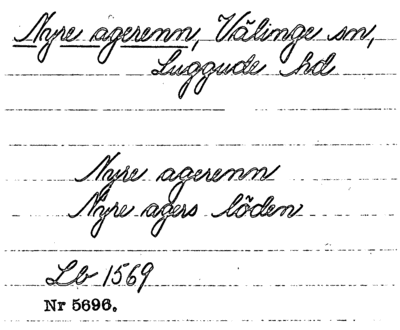 Nyre agerenn, Välinge sn,
Luggude hd
Nyre agerenn
Nyre agers löden
Lb 1569
Nr 5696.